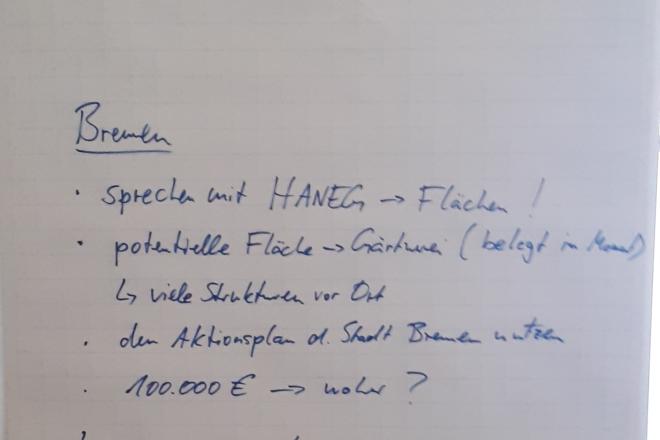 Bremen
· sprechen mit HANEG → Flächen !
· potentielle Fläche → Gärtnerei (belegt im
↳ viele Strukturen vor Ort
· den Aktionsplan d. Stadt Bremen nutzen
· 100.000 € → woher ?